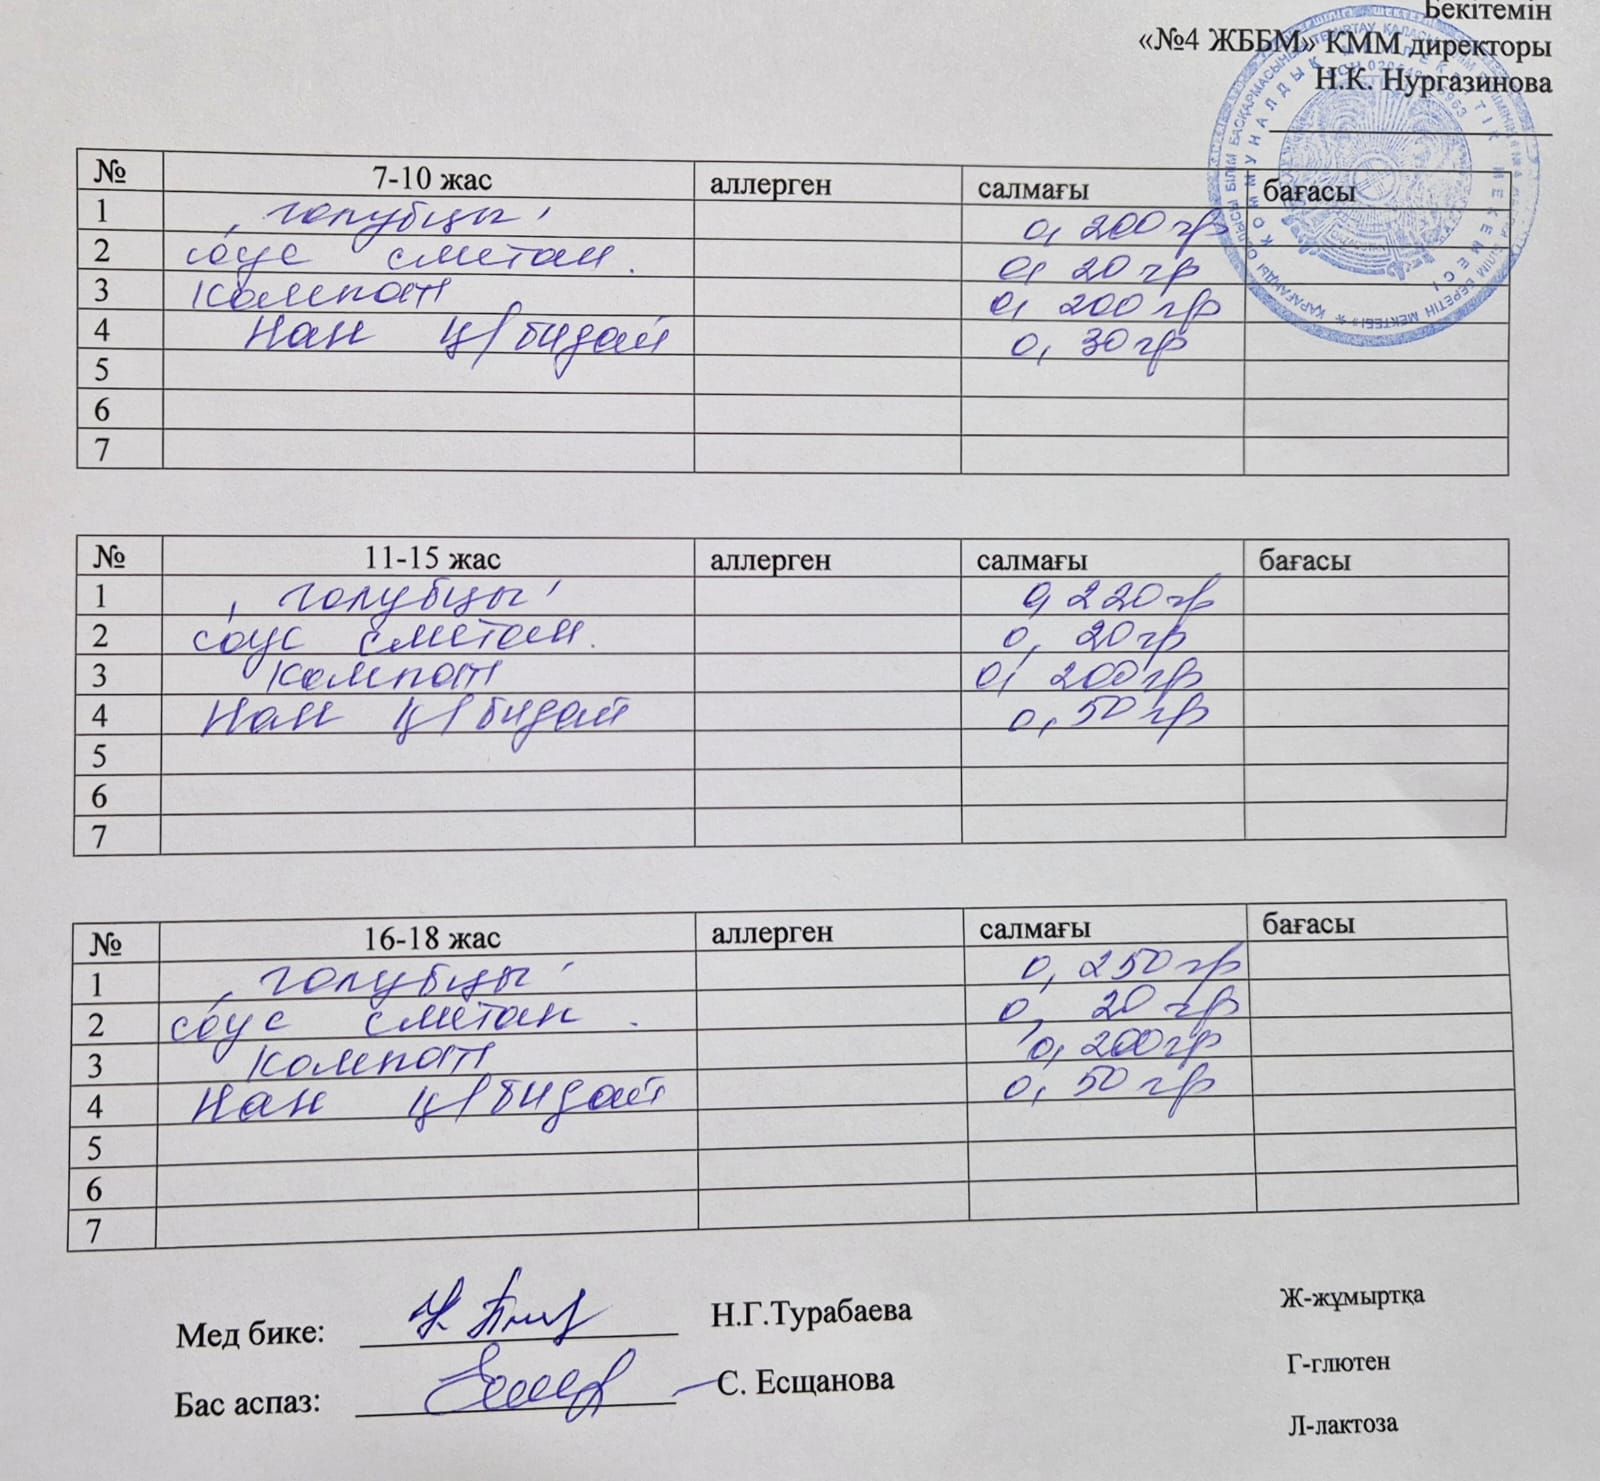 Бекітемін
«№4 ЖББМ» КММ директоры
Н.К. Нургазинова
№ 7-10 жас аллерген салмағы бағасы
1 „голубцы" 0,200гр
2 соус сметан. 0,20гр
3 Компот 0,200гр
4 Нан ц/бидай 0,30гр
5
6
7
№ 11-15 жас аллерген салмағы бағасы
1 „голубцы" 0,220гр
2 соус сметан. 0,20гр
3 Компот 0,200гр
4 Нан ц/бидай 0,50гр
5
6
7
№ 16-18 жас аллерген салмағы бағасы
1 „голубцы" 0,250гр
2 соус сметан. 0,20гр
3 Компот 0,200гр
4 Нан ц/бидай 0,50гр
5
6
7
Мед бике: Н.Г.Турабаева
Бас аспаз: С. Есщанова
Ж-жұмыртқа
Г-глютен
Л-лактоза